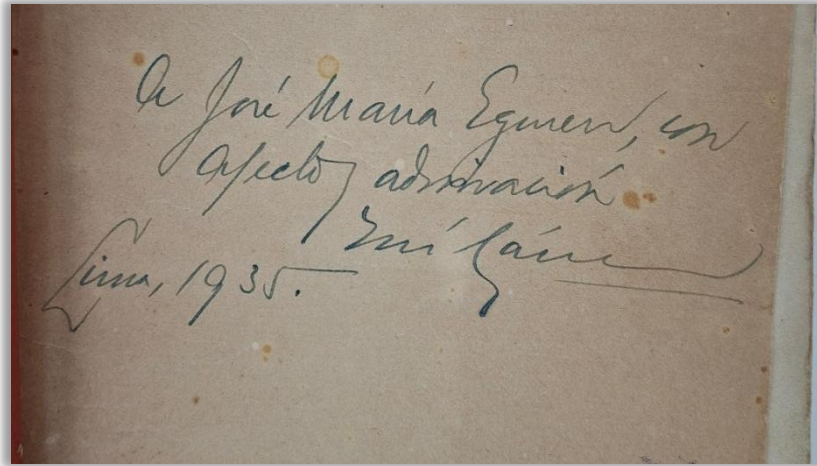 A José María Eguren, con
afecto y admiración
Lima, 1935.